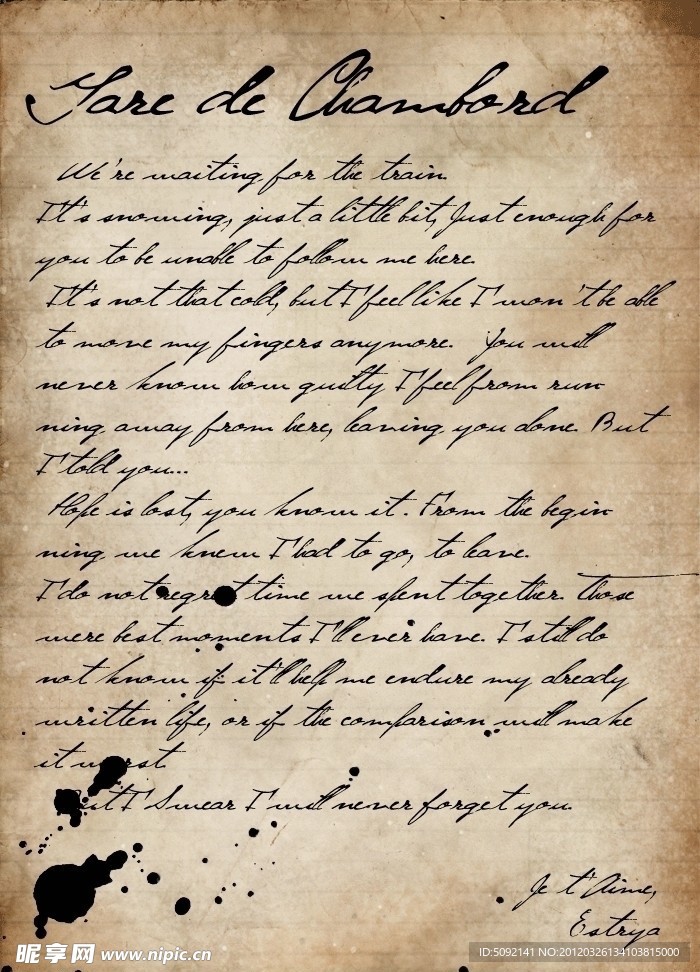 Gare de Chambord
We're waiting for the train.
It's snowing, just a little bit, Just enough for
you to be unable to follow me here.
It's not that cold, but I feel like I won't be able
to move my fingers anymore. You will
never know how guilty I feel from run
ning away from here, leaving you alone. But
I told you...
Hope is lost, you know it. From the begin
ning we knew I had to go, to leave.
I do not regret time we spent together. Those
were best moments I'll ever have. I still do
not know if it'll help me endure my already
written life, or if the comparison will make
it worst.
But I Swear I will never forget you.
Je t'Aime,
Estrya
昵享网 www.nipic.cn
ID:5092141 NO:20120326134103815000